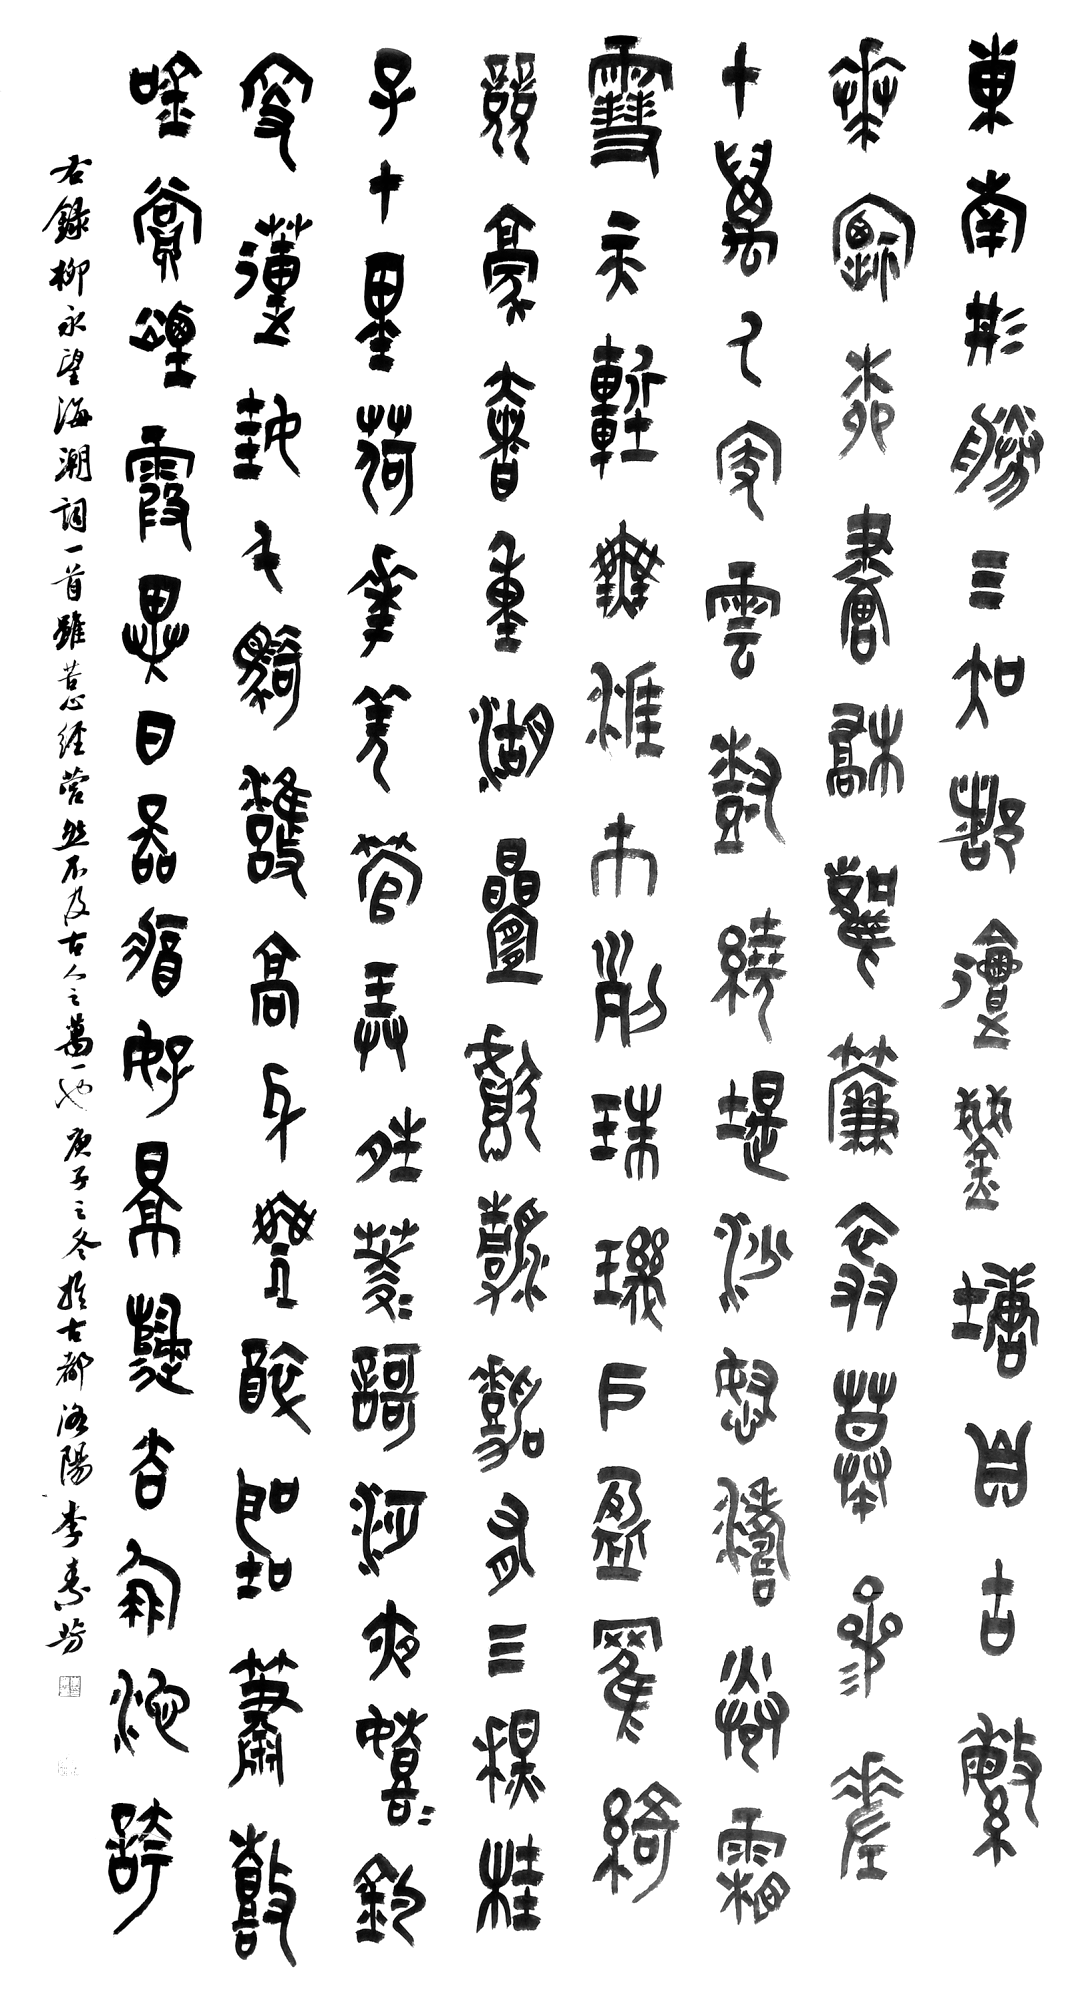 東南形勝三吳都會錢塘自古繁
華煙柳畫橋風簾翠幕參差
十萬人家雲樹繞堤沙怒濤卷霜
雪天塹無涯市列珠璣戶盈羅綺
競豪奢重湖疊巘清嘉有三秋桂
子十里荷花羌管弄晴菱歌泛夜嬉嬉釣
叟蓮娃千騎擁高牙乘醉聽簫鼓
吟賞煙霞異日圖將好景歸去鳳池誇
右錄柳永望海潮詞一首雖苦心經營然不及古人之萬一也 庚子之冬於古都洛陽 李芳